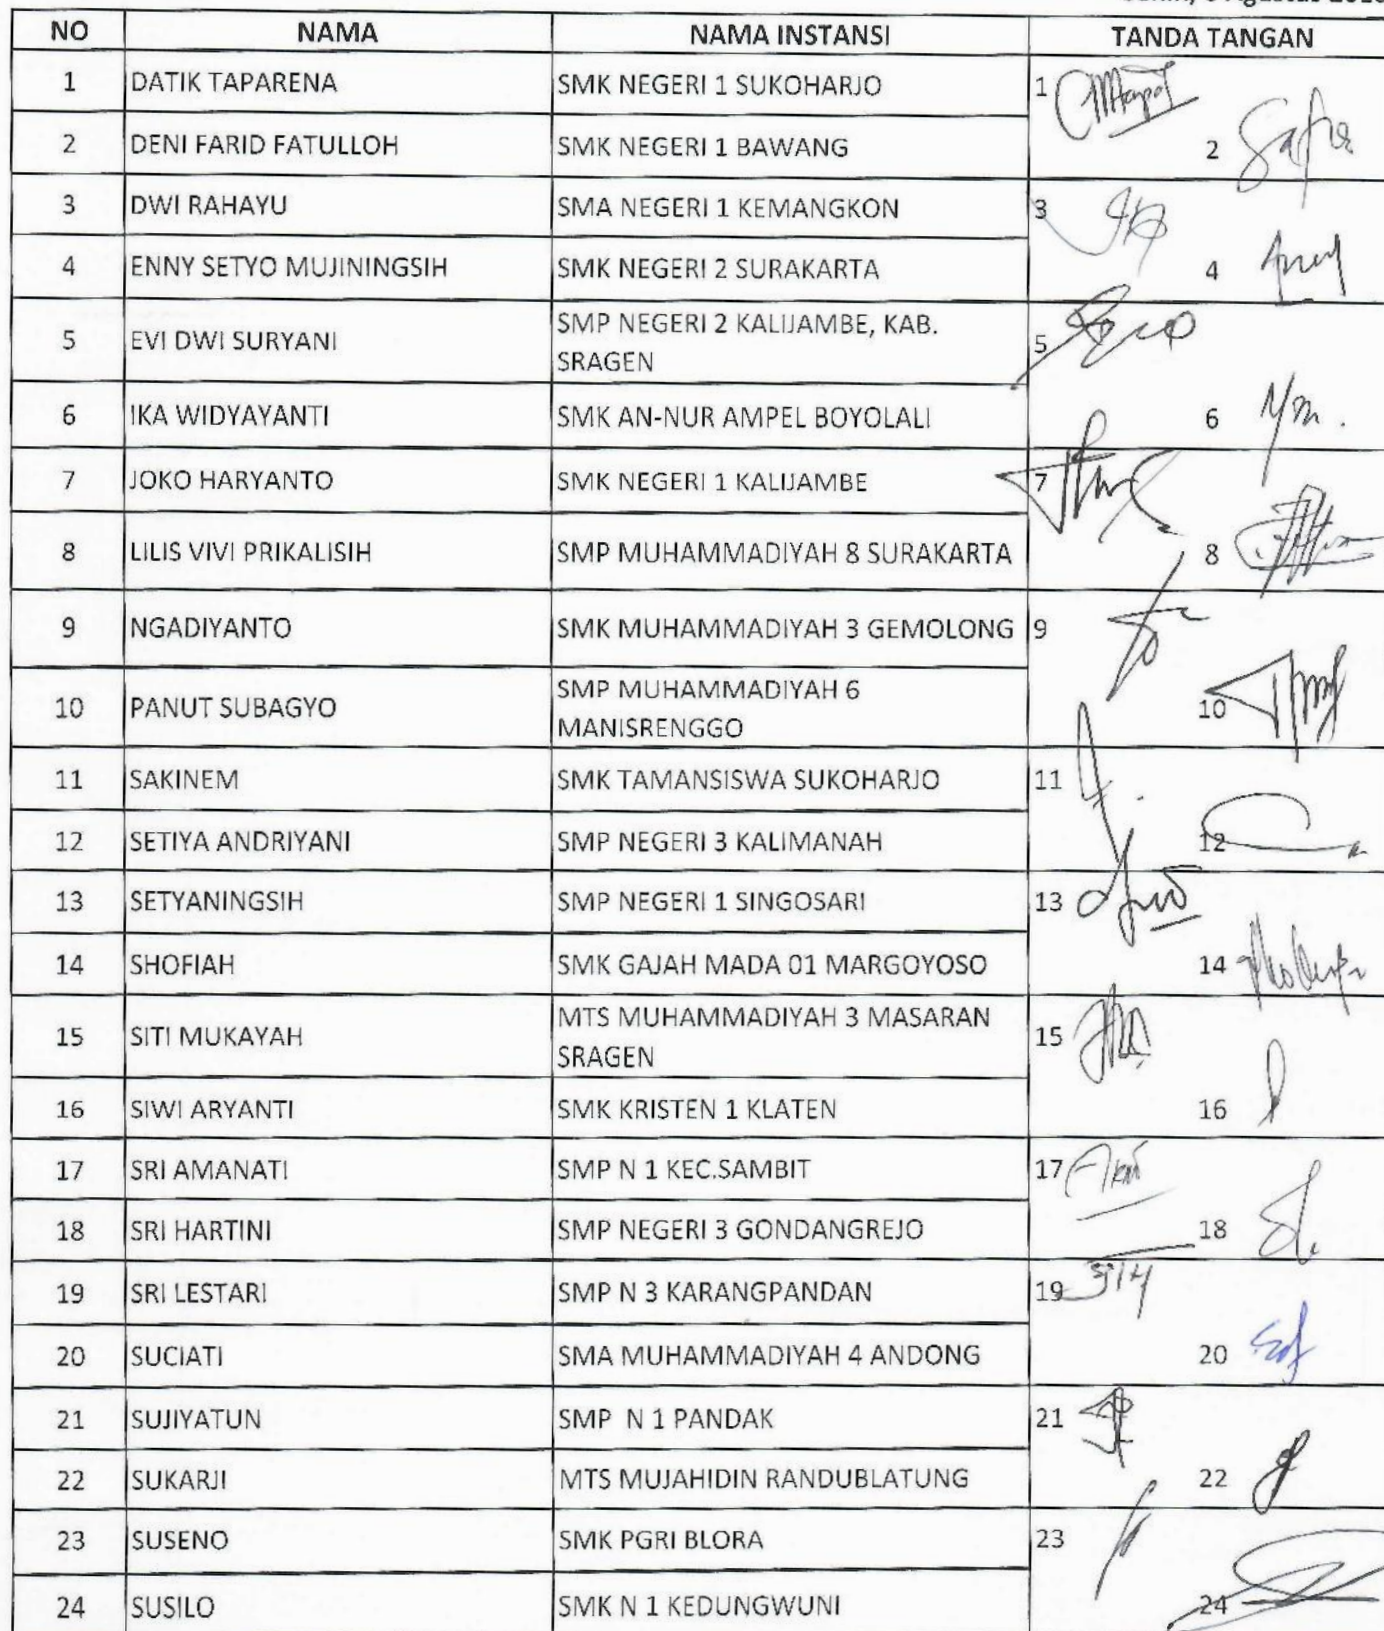 Agustus
NO NAMA NAMA INSTANSI TANDA TANGAN
1 DATIK TAPARENA SMK NEGERI 1 SUKOHARJO 1
2 DENI FARID FATULLOH SMK NEGERI 1 BAWANG 2
3 DWI RAHAYU SMA NEGERI 1 KEMANGKON 3
4 ENNY SETYO MUJININGSIH SMK NEGERI 2 SURAKARTA 4
5 EVI DWI SURYANI SMP NEGERI 2 KALIJAMBE, KAB.
SRAGEN 5
6 IKA WIDYAYANTI SMK AN-NUR AMPEL BOYOLALI 6
7 JOKO HARYANTO SMK NEGERI 1 KALIJAMBE 7
8 LILIS VIVI PRIKALISIH SMP MUHAMMADIYAH 8 SURAKARTA 8
9 NGADIYANTO SMK MUHAMMADIYAH 3 GEMOLONG 9
10 PANUT SUBAGYO SMP MUHAMMADIYAH 6
MANISRENGGO 10
11 SAKINEM SMK TAMANSISWA SUKOHARJO 11
12 SETIYA ANDRIYANI SMP NEGERI 3 KALIMANAH 12
13 SETYANINGSIH SMP NEGERI 1 SINGOSARI 13
14 SHOFIAH SMK GAJAH MADA 01 MARGOYOSO 14
15 SITI MUKAYAH MTS MUHAMMADIYAH 3 MASARAN
SRAGEN 15
16 SIWI ARYANTI SMK KRISTEN 1 KLATEN 16
17 SRI AMANATI SMP N 1 KEC.SAMBIT 17
18 SRI HARTINI SMP NEGERI 3 GONDANGREJO 18
19 SRI LESTARI SMP N 3 KARANGPANDAN 19
20 SUCIATI SMA MUHAMMADIYAH 4 ANDONG 20
21 SUJIYATUN SMP N 1 PANDAK 21
22 SUKARJI MTS MUJAHIDIN RANDUBLATUNG 22
23 SUSENO SMK PGRI BLORA 23
24 SUSILO SMK N 1 KEDUNGWUNI 24